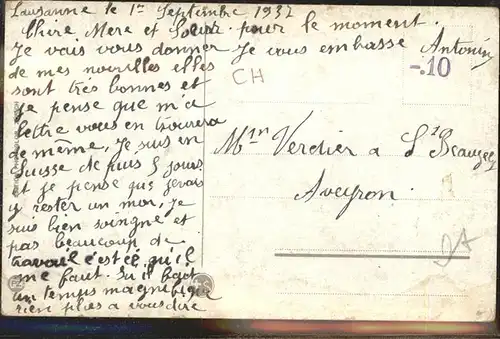 Lausanne le 1er Septembre 1932
Chère Mere et Soeur
Je vais vous donner
de mes nouvelles elles
sont très bonnes et
je pense que m'a
lettre vous en trouvera
de même. Je suis en
Suisse de puis 5 jours
et je pense que j'evais
y rester un moi, je
suis bien soingné et
pas beaucoup de
travail c'est cé qu'il
me faut. Su il fait
un temps magnifique
rien plus a vous dire
pour le moment.
Je vous embasse Antonin
-.10
CH
Mme Verdier a St Beauzely
Aveyron.